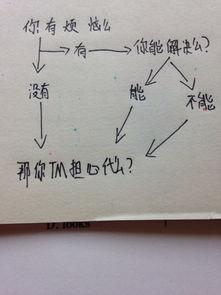 你有烦恼么
有 你能解决么?
没有 能 不能
那你TM担心什么?
D. looks